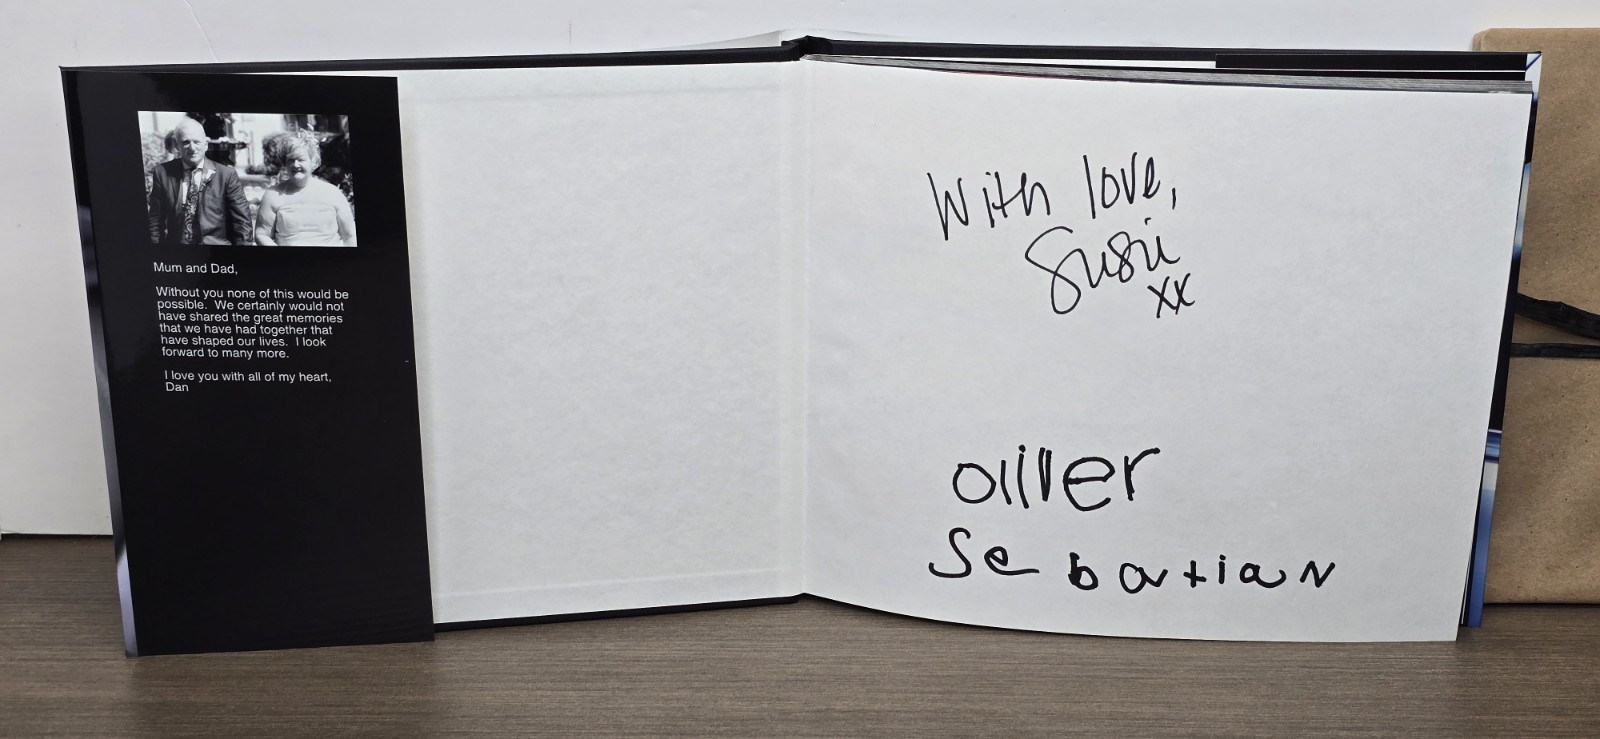 Mum and Dad,
Without you none of this would be
possible. We certainly would not
have shared the great memories
that we have had together that
have shaped our lives. I look
forward to many more.
I love you with all of my heart,
Dan
With love,
Susie
xx
oliver
Sebastian